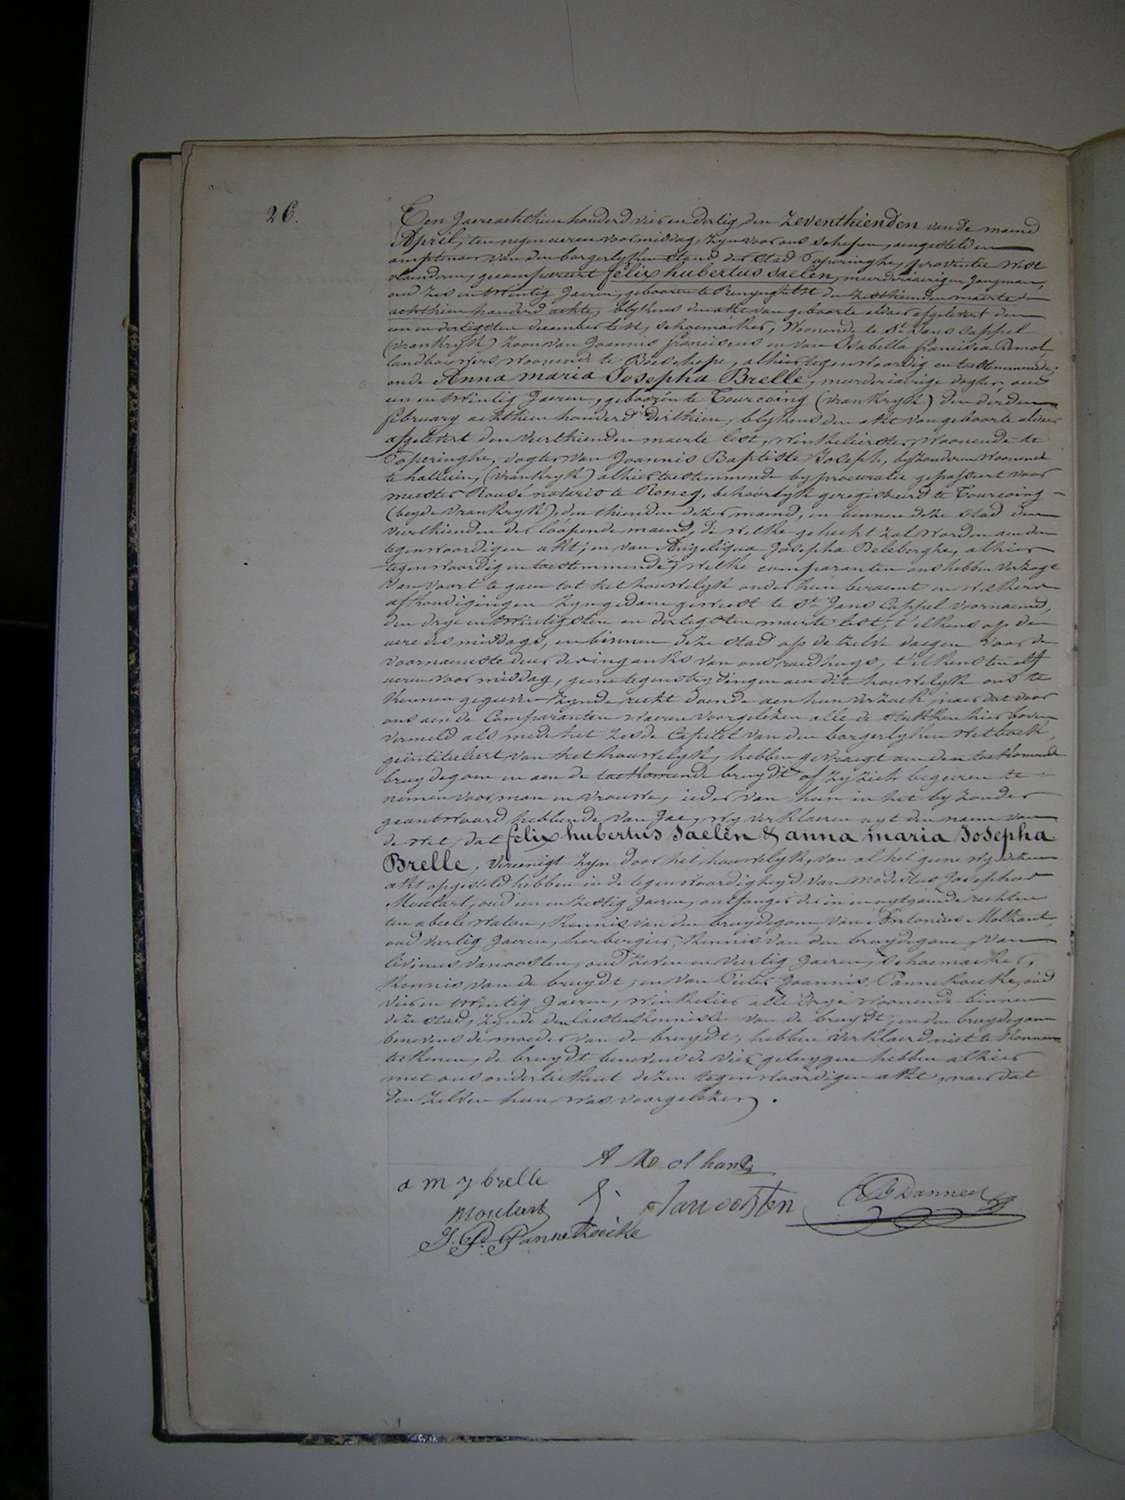 26.
Ten Jaere achtien honderd vier en dertig den zeventhienden van de maend
April, ten negen ueren voormiddag, zyn voor ons schepen, aengesteld en
amptenaer van den borgerlyken stand der stad Poperinghe, provintie West
vlaenderen, gecompareert felix hubertus saelen, meerderjaerigen Jongman,
oud zes en twintig Jaeren, geboren te Renynghelst den zesthienden maerte
achthien honderd achte, blykens den akt van geboorte aldaer afgelevert den
een en dertigsten december lest, schoemaeker, Woonende te St Jans Cappel
(vrankryk) zoon van Joannis franciscus en van Isabella francisca
landbouwers woonende te Boeschepe, alhier tegenwoordig en toestemmende;
ende Anna maria Josepha Brelle, meerderjarige dogter, oud
een en twintig Jaeren, geboren te Tourcoing (vrankryk) den derden
february achthien honderd dirthien, blykens den akt van geboorte aldaer
afgelevert den veerthienden maerte lest, Winkelierster, Woonende te
Poperinghe, dogter van Joannis Baptiste Joseph, byzonderen Woonende
te halluin, (vrankryk) alhier toestemmende by procuratie gepasseert voor
meester Rouse notaris te Roncq, behoorlyk geregistreerd te Tourcoing
(beyde vrankryk), den thienden dezer maend, en binnen deze stad den
veerthienden der loopende maend, de welke gehecht zal worden aen den
tegenwoordigen akt; en van Angeliqua Josepha Deleberghe, alhier
tegenwoordig en toestemmende; welke comparanten ons hebben verzogt
van voort te gaen tot het houwelyk onder hun beraemt en welkers
afkondigingen zyn gedaen geweest te St Jans Cappel voornoemd,
den drye en twintigsten en dertigsten maerte lest, t'elkens op den
uere des middags, en binnen deze stad op de zelve daegen voor de
voornaemste deur der inganks van ons raedhuys, t'elkens ten elf
ueren voormiddag, geene tegenstrydingen aen dit houwelyk ons te
kennen gegeven zynde, recht doende aen hun verzoek, naer dat door
ons aen de Comparanten waeren voorgelezen alle de stukken hier boven
vermeld als mede het zesde Capittel van den borgerlyken wetboek,
geintituleert van het houwelyk, hebben gevraegt aen den toekomende
bruydegom en aen de toekomende bruydt of zy zich begeeren te
nemen voor man en vrouwe, ieder van hun in het byzonder
geantwoord hebbende van Jae, wy verklaeren uyt den naem van
de wet, dat felix hubertus saelen & anna maria Josepha
Brelle, vereenigt zyn door het houwelyk, van al het geene wy dezen
akt opgesteld hebben in de tegenwoordigheyd van modestus Josephus
Moulart, oud een en zestig Jaeren, ontfanger der in en uytgaende rechten
ten abeele staten, kennis van den bruydegom, van Antonius Molhant,
oud veertig Jaeren, herbergier, kennis van den bruydegom, van
Livinus vanoosten, oud zeven en veertig Jaeren, schoemaeker,
kennis van de bruydt, en van Pieter Joannis Pannekoucke, oud
vier en twintig Jaeren, Winkelier alle drye woonende binnen
deze stad, zynde den laesten kennisse van de bruydt; en den bruydegom
benevens de moeder van de bruydt, hebben verklaerd niet te konnen
teekenen, de bruydt benevens de vier getuygen hebben alhier
met ons onderteekent dezen tegenwoordigen akt, naer dat
den zelven hun was voorgelezen.
A Molhant
a m j brelle
L. Vanoosten
Moulart
P. J. Pannekoucke